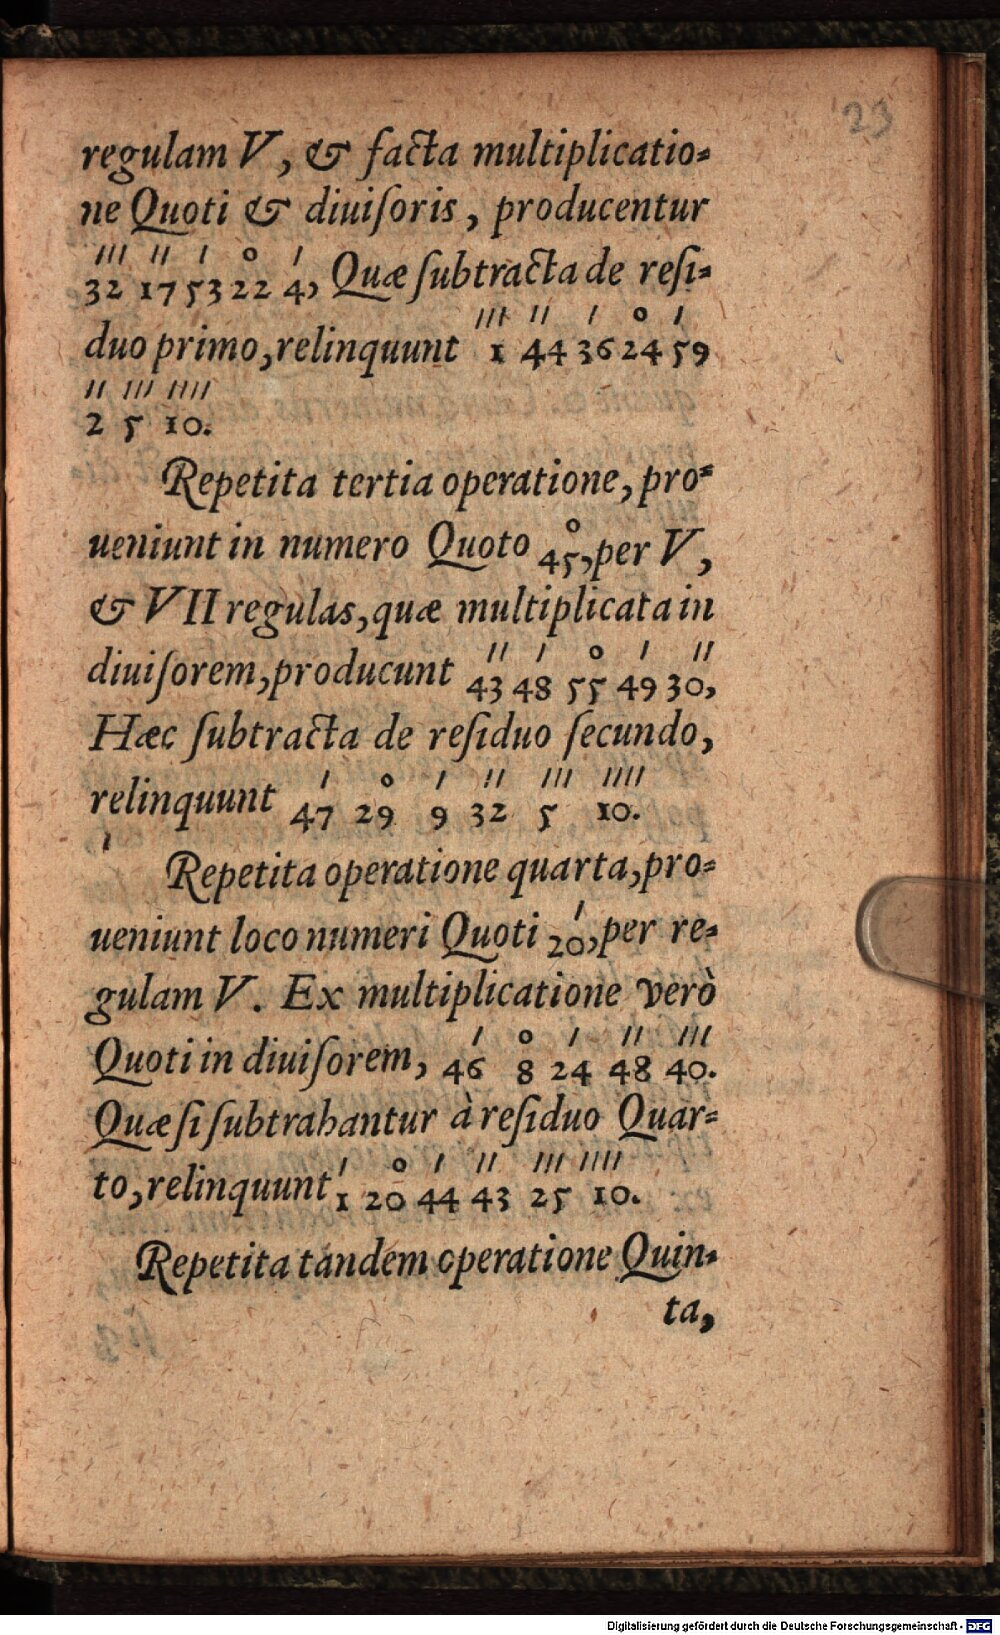 23
regulam V, & facta multiplicatio-
ne Quoti & diuiſoris, producentur
ııı ıı ı o ı
32 17 53 22 4, Quæ ſubtracta de reſi-
ııı ıı ı o ı
duo primo, relinquunt 1 44 36 24 59
ıı ııı ıııı
2 5 10.
Repetita tertia operatione, pro-
o
ueniunt in numero Quoto 45, per V,
& VII regulas, quæ multiplicata in
ıı ı o ı ıı
diuiſorem, producunt 43 48 55 49 30,
Hæc ſubtracta de reſiduo ſecundo,
ı o ı ıı ııı ıııı
relinquunt 47 29 9 32 5 10.
Repetita operatione quarta, pro-
ı
ueniunt loco numeri Quoti 20, per re-
gulam V. Ex multiplicatione verò
ı o ı ıı ııı
Quoti in diuiſorem, 46 8 24 48 40.
Quæ ſi ſubtrahantur à reſiduo Quar-
ı o ı ıı ııı ıııı
to, relinquunt 1 20 44 43 25 10.
Repetita tandem operatione Quin-
ta,
Digitalisierung gefördert durch die Deutsche Forschungsgemeinschaft - DFG